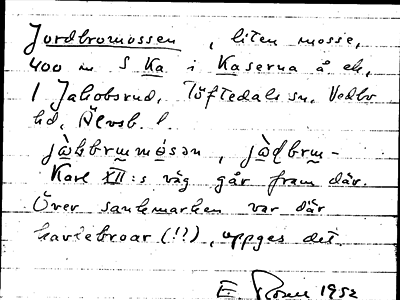 Jordbromossen, liten mosse,
400 m S Ka i Kaserna å ek,
/ Jakobsrud, Töftedals sn, Vedbo
hd, Älvsb. l.
Karl XII:s väg går fram där.
Över sankmarken var där
kaviebroar (!?), uppges det.
E 1952